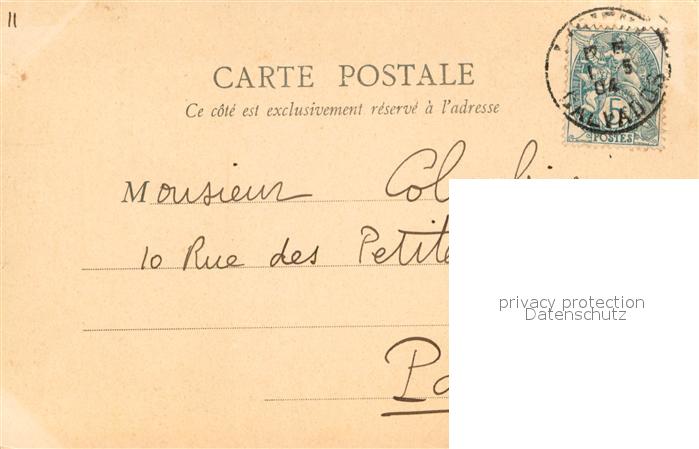 11
CARTE POSTALE
Ce côté est exclusivement réservé à l'adresse
5
POSTES
04
CALVADOS
Monsieur
10 Rue des Petite
Pa
privacy protection
Datenschutz